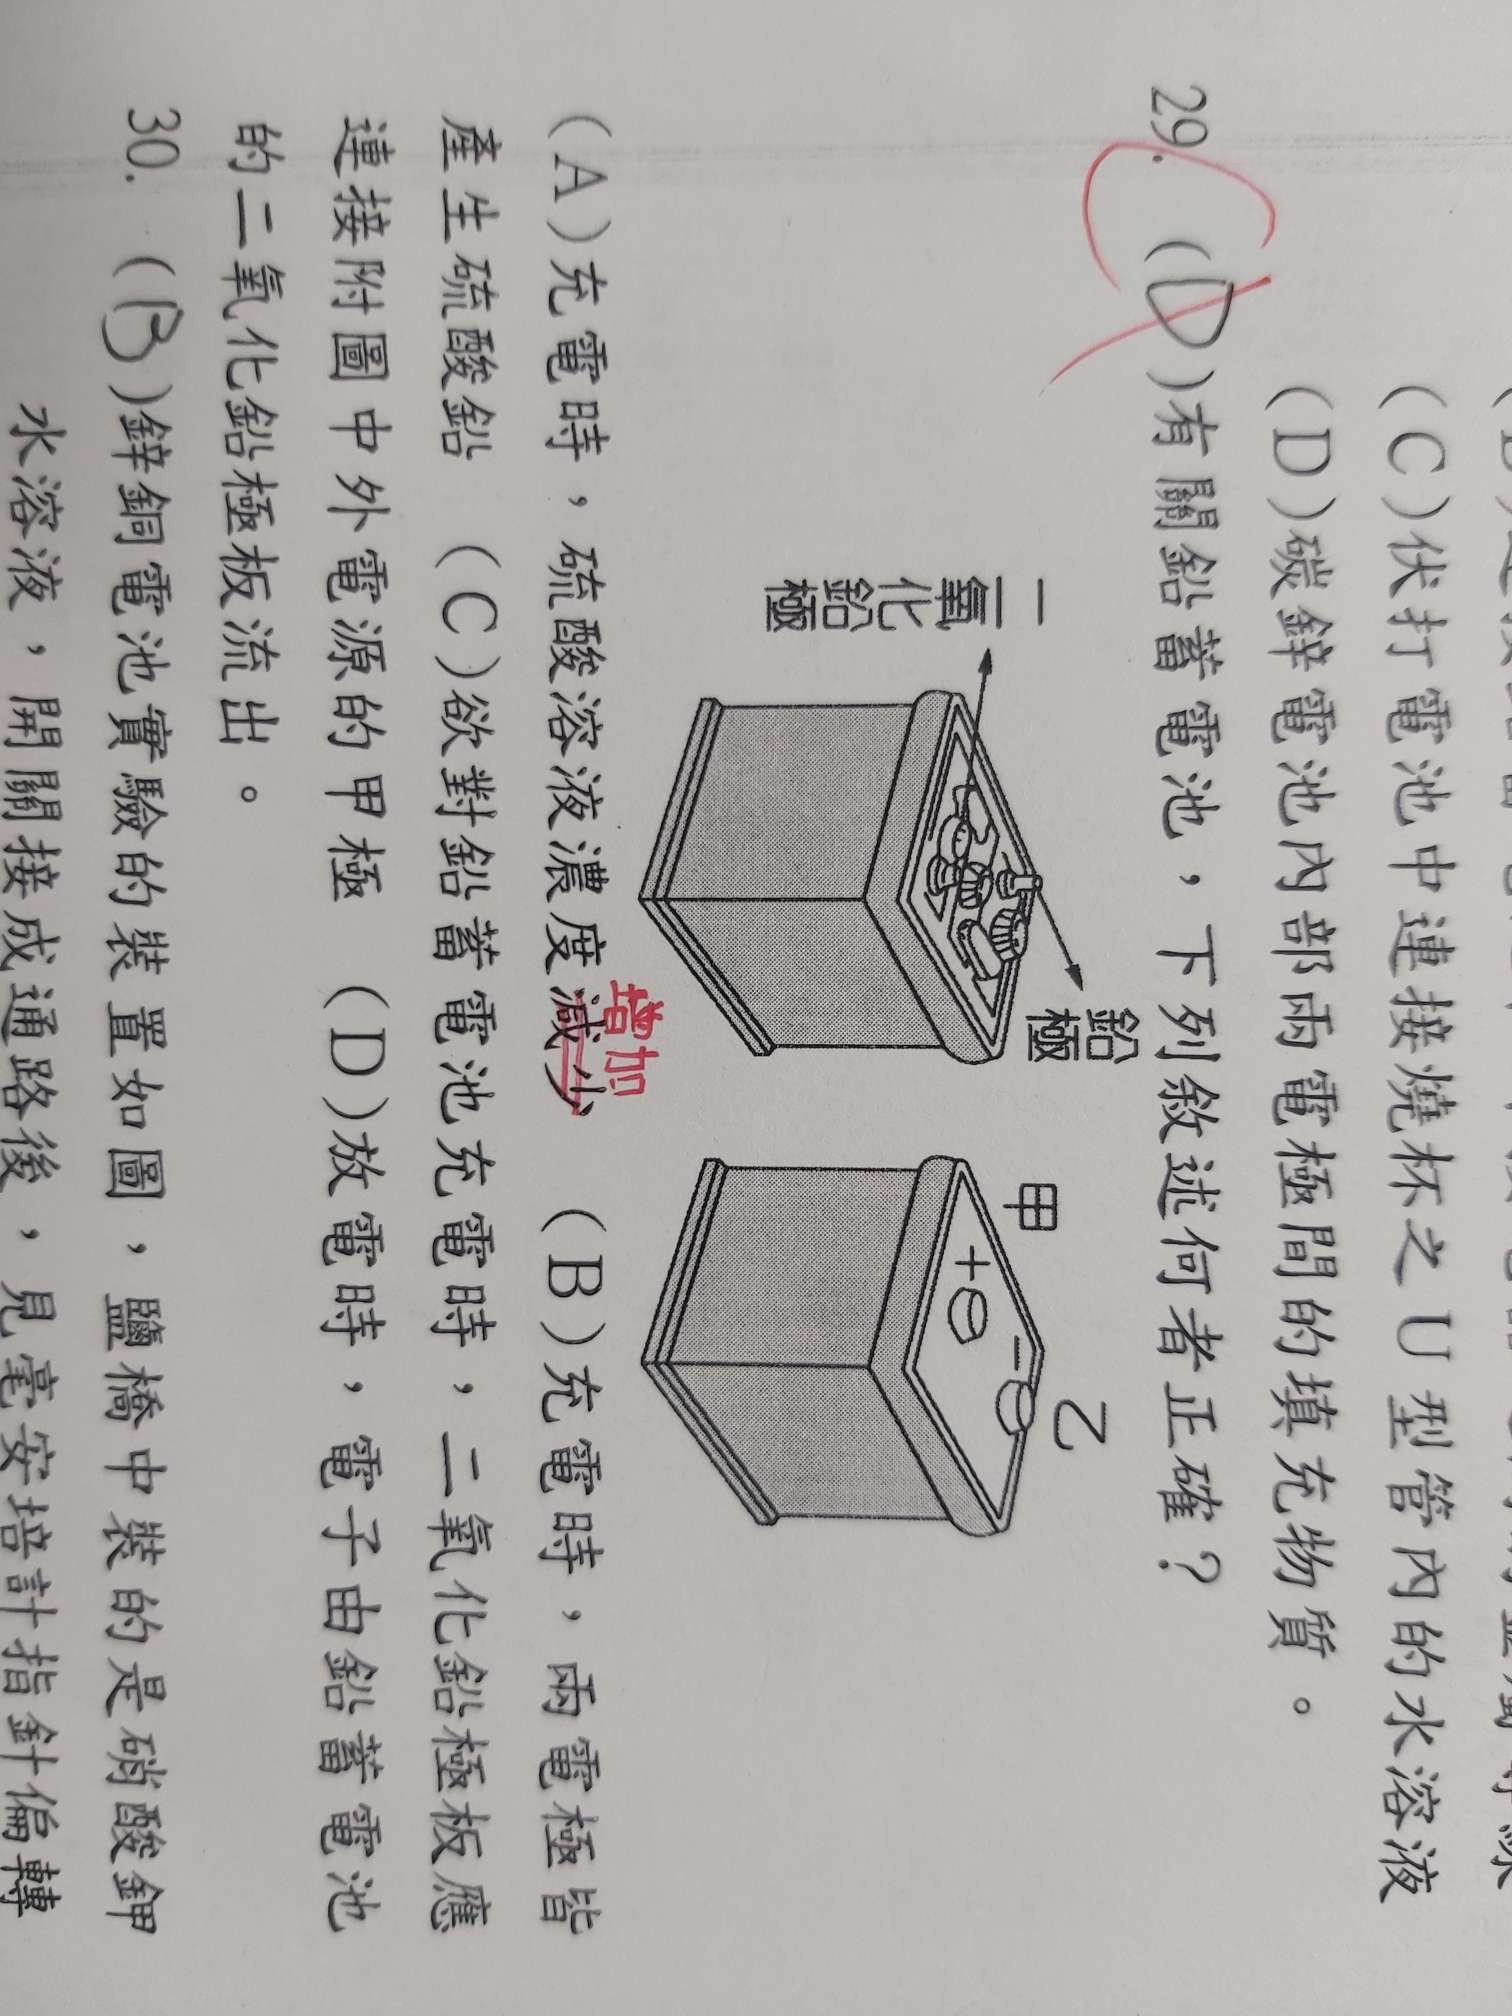 (C)伏打電池中連接燒杯之U型管內的水溶液
(D)碳鋅電池內部兩電極間的填充物質。
29. (D)有關鉛蓄電池，下列敘述何者正確？
二氧化鉛極
鉛極
甲
乙
+
−
增加
(A)充電時，硫酸溶液濃度減少 (B)充電時，兩電極皆
產生硫酸鉛 (C)欲對鉛蓄電池充電時，二氧化鉛極板應
連接附圖中外電源的甲極 (D)放電時，電子由鉛蓄電池
的二氧化鉛極板流出。
30. (B)鋅銅電池實驗的裝置如圖，鹽橋中裝的是硝酸鉀
水溶液，開關接成通路後，見毫安培計指針偏轉